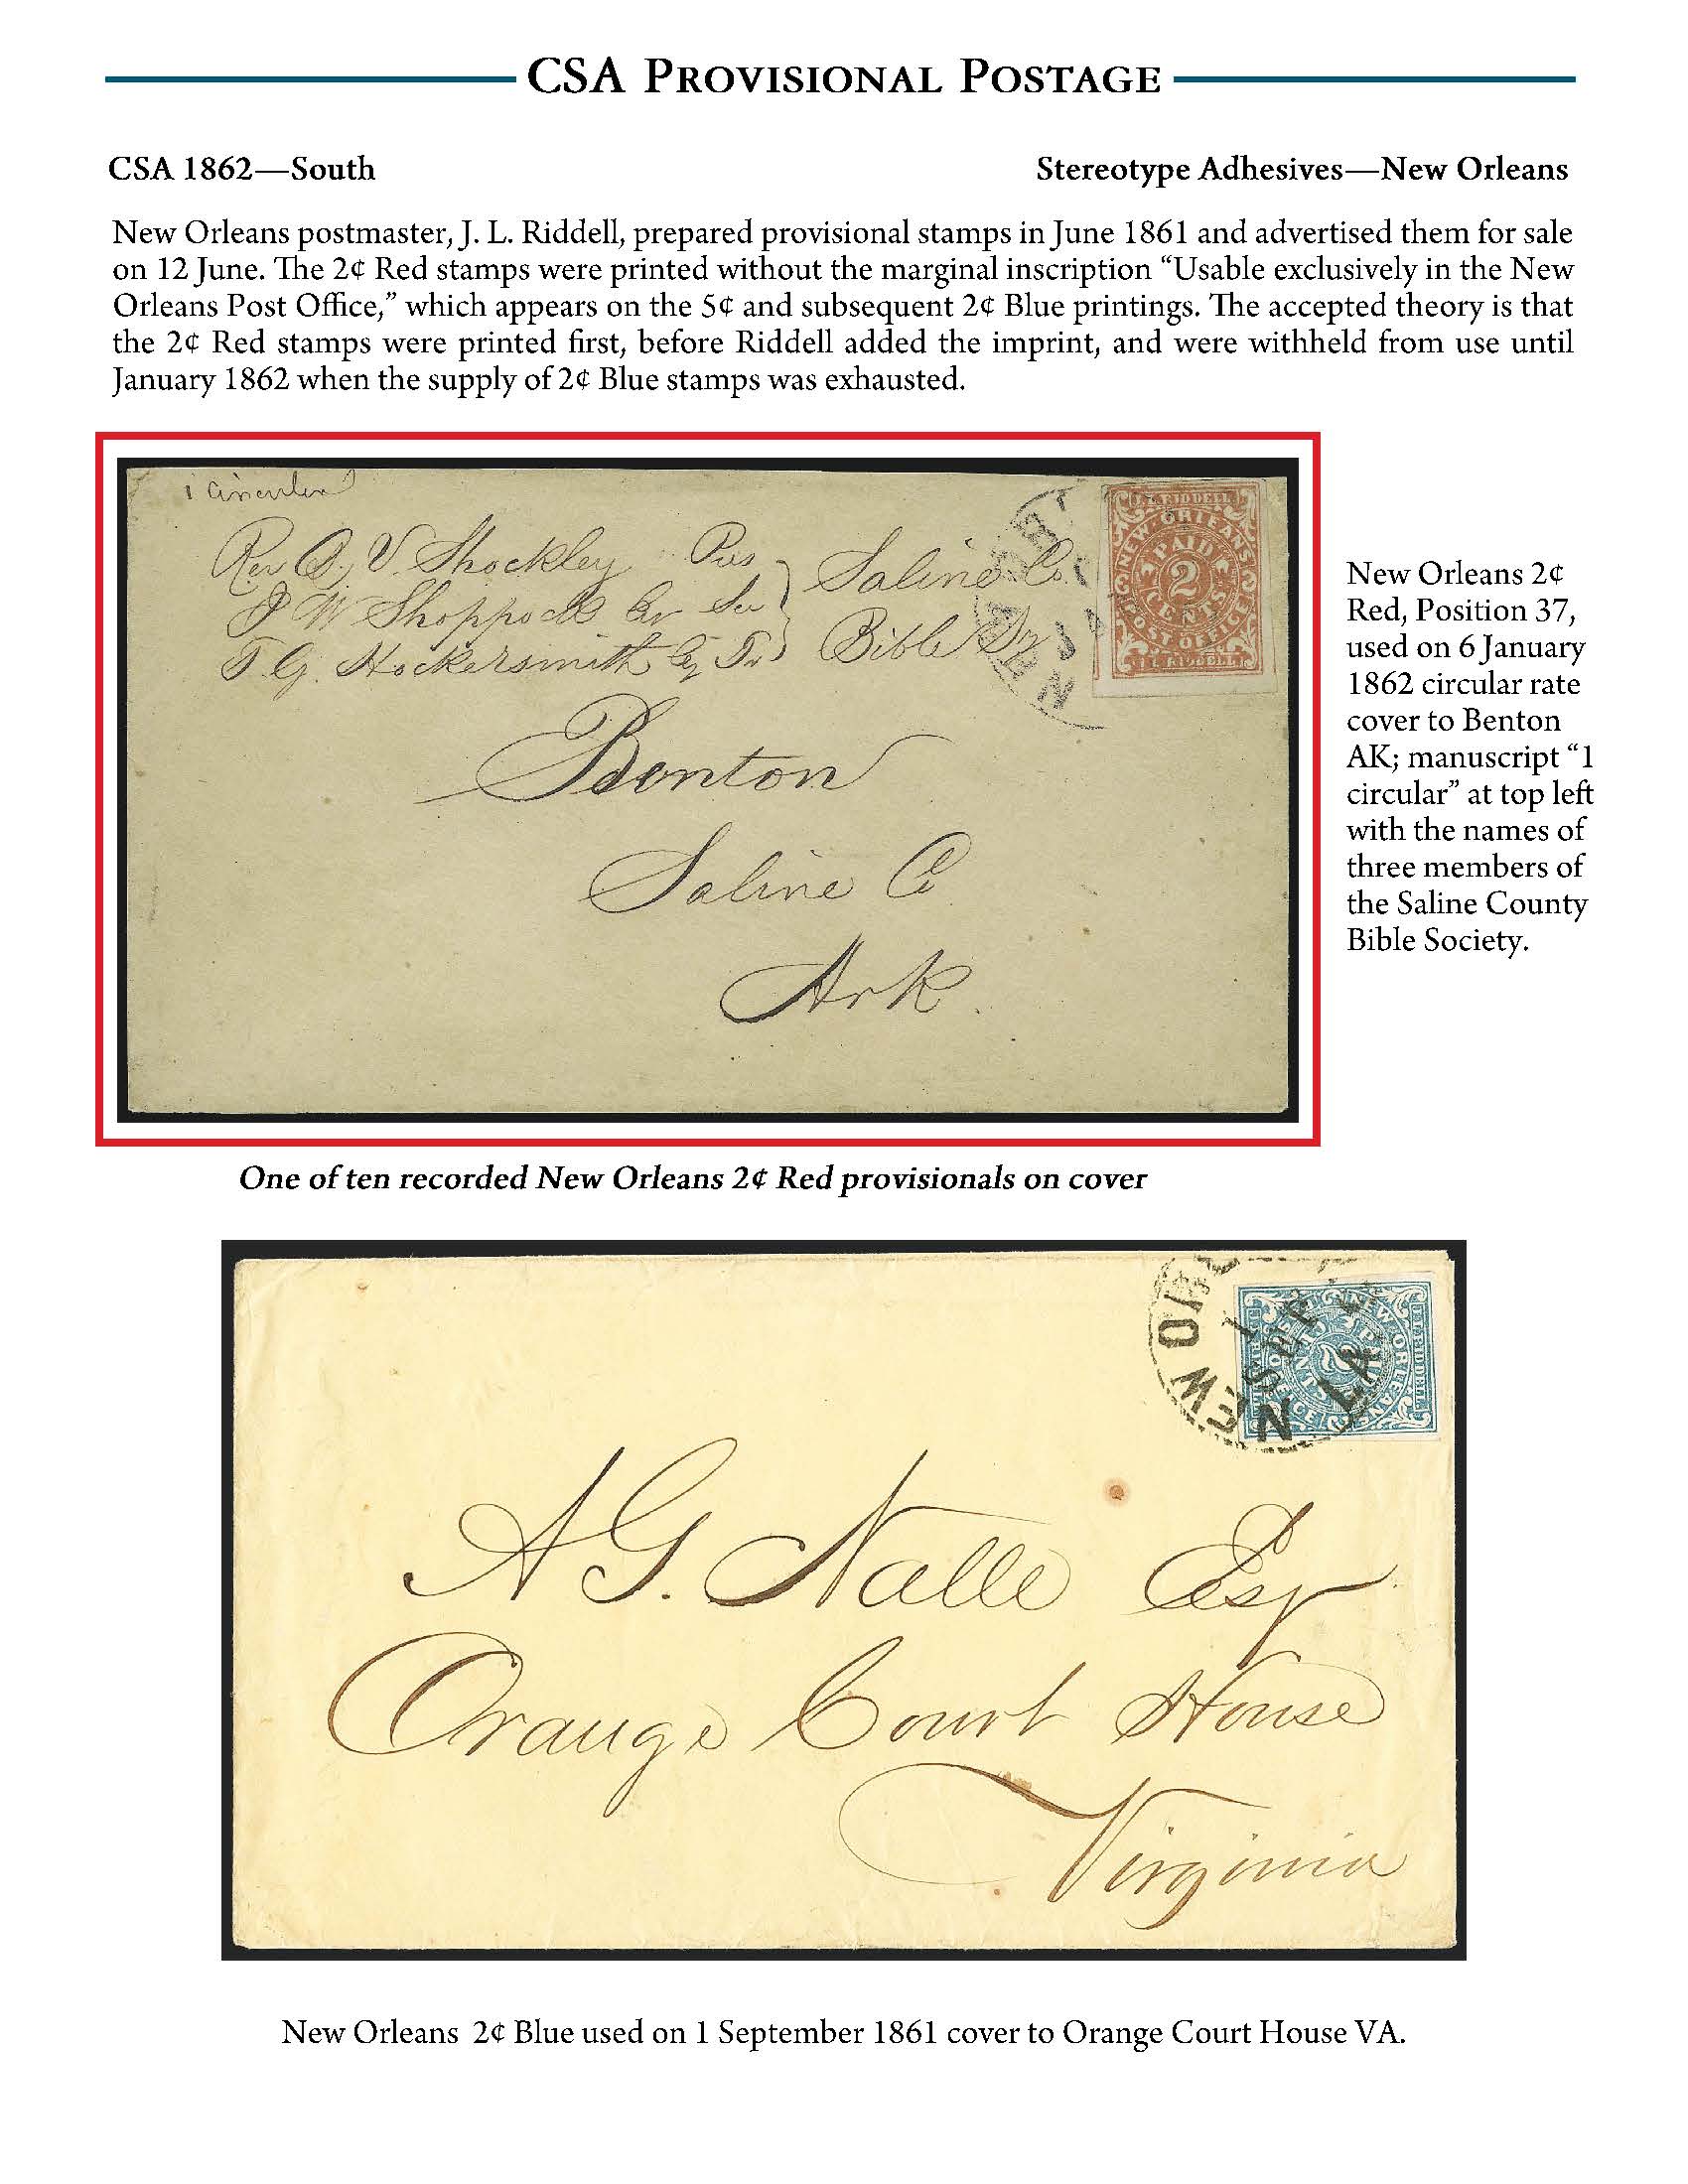 CSA PROVISIONAL POSTAGE
CSA 1862—South
Stereotype Adhesives—New Orleans
New Orleans postmaster, J. L. Riddell, prepared provisional stamps in June 1861 and advertised them for sale
on 12 June. The 2¢ Red stamps were printed without the marginal inscription “Usable exclusively in the New
Orleans Post Office,” which appears on the 5¢ and subsequent 2¢ Blue printings. The accepted theory is that
the 2¢ Red stamps were printed first, before Riddell added the imprint, and were withheld from use until
January 1862 when the supply of 2¢ Blue stamps was exhausted.
1 Circular
Rev Q. V. Shockley Pres
J W Shoppock Cor Sec
T. G. Hockersmith Esq Tr
Saline Co.
Bible
Benton
Saline Co
Ark.
J. L. RIDDELL
NEW ORLEANS
PAID
2
CENTS
POST OFFICE
J. L. RIDDELL
New Orleans 2¢
Red, Position 37,
used on 6 January
1862 circular rate
cover to Benton
AK; manuscript “1
circular” at top left
with the names of
three members of
the Saline County
Bible Society.
One of ten recorded New Orleans 2¢ Red provisionals on cover
NEW OR
1
SEP
LA
NEW ORLEANS
2
A G. Nalle Esqr
Orange Court House
Virginia
New Orleans 2¢ Blue used on 1 September 1861 cover to Orange Court House VA.